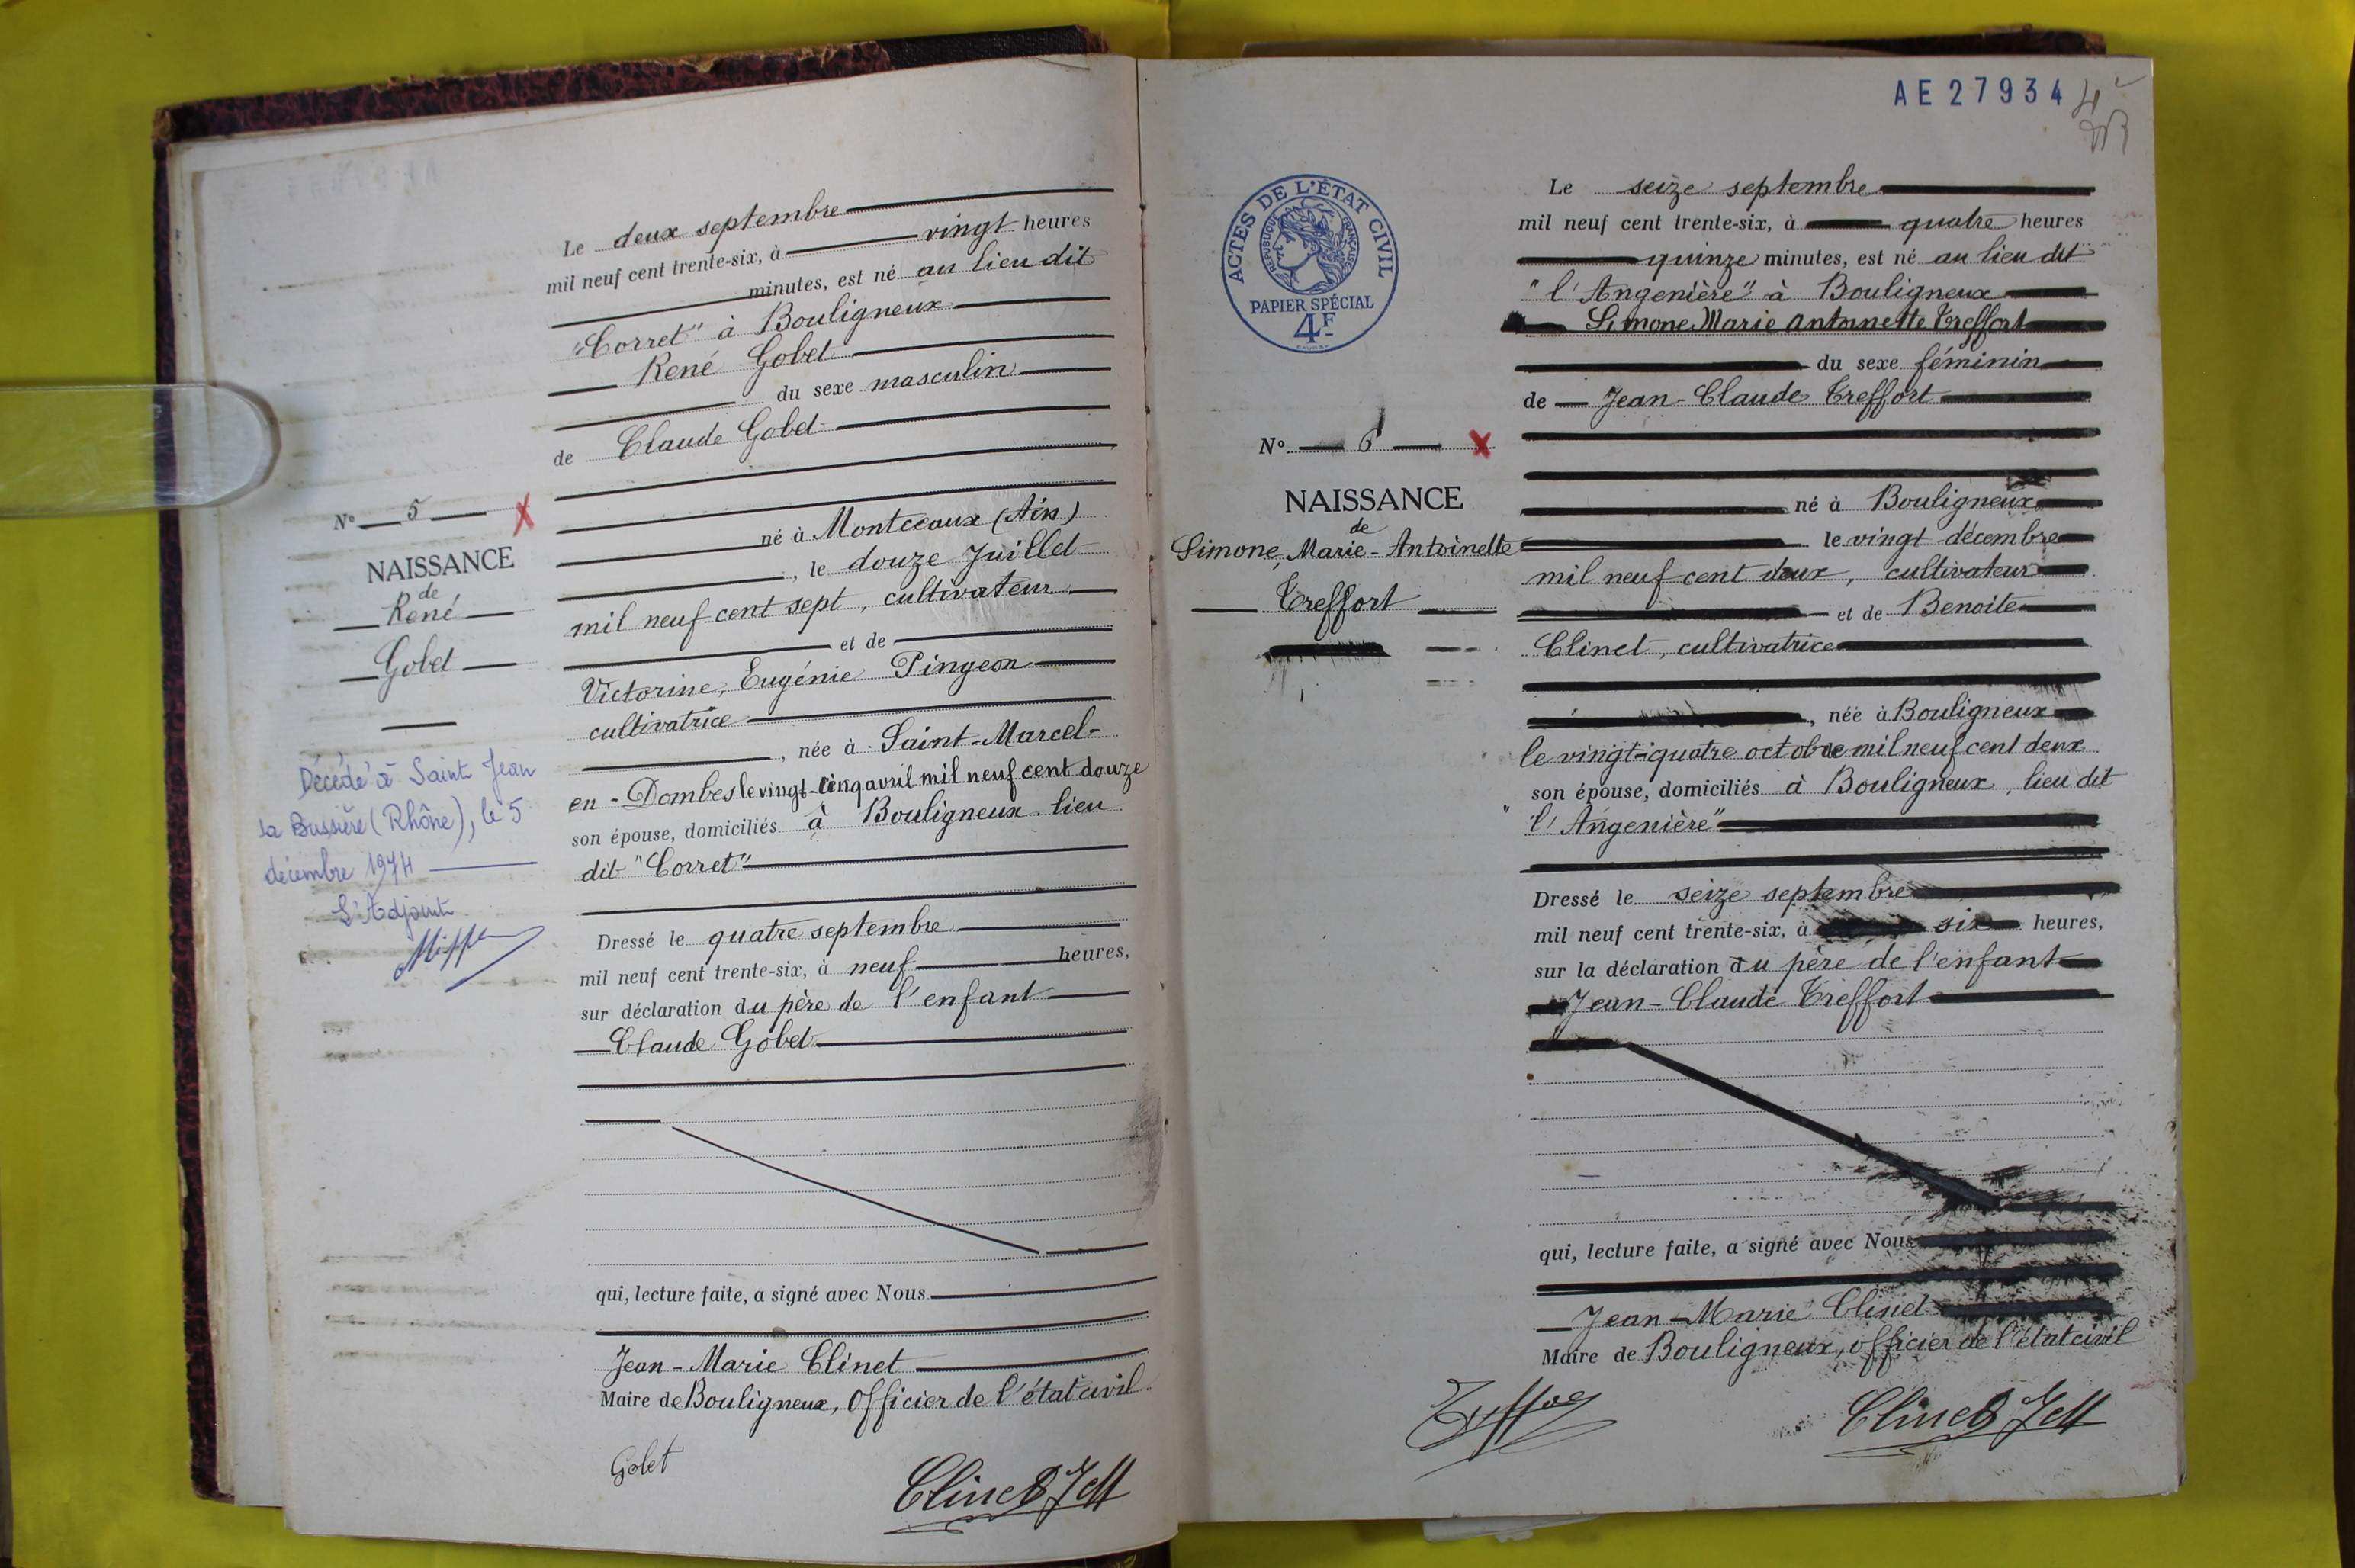 Le deux septembre
mil neuf cent trente-six, à vingt heures
minutes, est né au lieu dit
"Corret" à Bouligneux
René Gobet
du sexe masculin
de Claude Gobet
né à Montceaux (Ain)
, le douze Juillet
mil neuf cent sept, cultivateur
et de
Victorine, Eugénie Pingeon
cultivatrice
, née à Saint-Marcel-
en-Dombes le vingt-cinq avril mil neuf cent douze
son épouse, domiciliés à Bouligneux lieu
dit "Corret"
Dressé le quatre septembre
mil neuf cent trente-six, à neuf heures,
sur déclaration du père de l'enfant
Claude Gobet
qui, lecture faite, a signé avec Nous
Jean-Marie Clinet
Maire de Bouligneux, Officier de l'état civil
Gobet
Clinet JM
N° 5 X
NAISSANCE
de
René
Gobet
Décédé à Saint Jean
la Bussière (Rhône), le 5
décembre 1974
L'Adjoint
AE27934
4
ACTES DE L'ÉTAT CIVIL
RÉPUBLIQUE FRANÇAISE
PAPIER SPÉCIAL
4F
N° 6 X
NAISSANCE
de
Simone, Marie-Antoinette
Treffort
Le seize septembre
mil neuf cent trente-six, à quatre heures
quinze minutes, est né au lieu dit
"l'Angenière" à Bouligneux
Simone Marie Antoinette Treffort
du sexe féminin
de Jean-Claude Treffort
né à Bouligneux
le vingt décembre
mil neuf cent deux, cultivateur
et de Benoite
Clinet, cultivatrice
, née à Bouligneux
le vingt-quatre octobre mil neuf cent deux
son épouse, domiciliés à Bouligneux, lieu dit
"l'Angenière"
Dressé le seize septembre
mil neuf cent trente-six, à six heures,
sur la déclaration du père de l'enfant
Jean-Claude Treffort
qui, lecture faite, a signé avec Nous
Jean-Marie Clinet
Maire de Bouligneux, officier de l'état civil
Treffort
Clinet JM